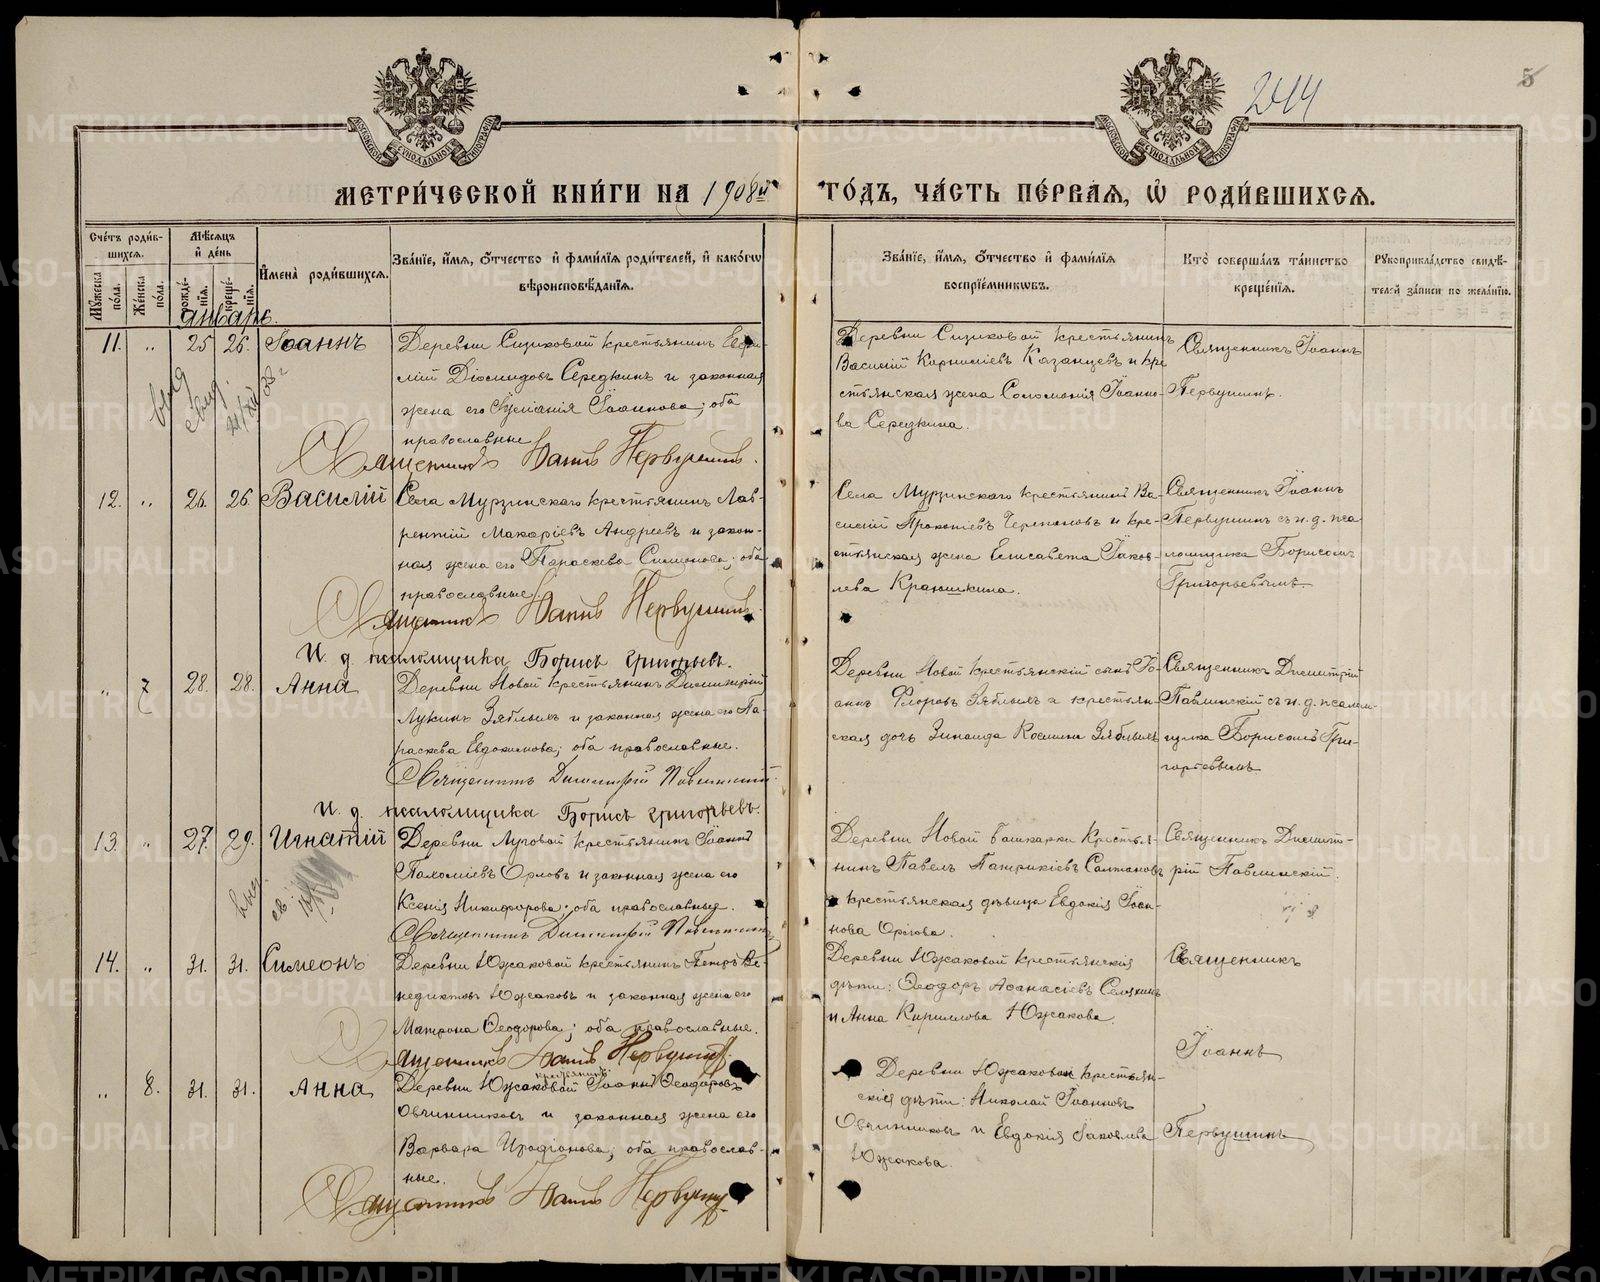 244
5
МОСКОВСКОЙ СѴНОДАЛЬНОЙ ТИПОГРАФІИ
МОСКОВСКОЙ СѴНОДАЛЬНОЙ ТИПОГРАФІИ
МЕТРИ́ЧЕСКОЙ КНИ́ГИ НА 1908й ГО́ДЪ, ЧА́СТЬ ПЕ́РВАѦ, Ѡ҆ РОДИ́ВШИХСѦ.
Сче́тъ роди́вшихсѧ.
Мꙋжеска по́ла.
Же́нска по́ла.
Мѣ́сѧцъ и҆ де́нь
рожде́нїѧ.
креще́нїѧ.
И҆мена̀ роди́вшихсѧ.
Зва́нїе, и҆́мѧ, ѻ҆́тчество и҆ фами́лїѧ роди́телей, и҆ како́гѡ
вѣроисповѣ́данїѧ.
Зва́нїе, и҆́мѧ, ѻ҆́тчество и҆ фами́лїѧ
воспрїе́мникѡвъ.
Кто̀ соверша́лъ та́инство
креще́нїѧ.
Рꙋкоприкла́дство свидѣ́-
телей за́писи по жела́нїю.
Январь.
11. „ 25 26. Іоаннъ
Деревни Сизиковой крестьянинъ Евфи-
мій Діомидовъ Середкинъ и законная
жена его Іуліанія Іоаннова; оба
православные
Священникъ Іоаннъ Первушинъ.
Деревни Сизиковой крестьянинъ
Василій Корниліевъ Казанцевъ и кре
стьянская жена Соломонія Іоанно-
ва Середкина.
Священникъ Іоаннъ
Первушинъ.
12. „ 26. 26. Василій
Села Мурзинскаго крестьянинъ Лав-
рентій Макаріевъ Андреевъ и закон-
ная жена его Параскева Симонова; оба
православные.
Священникъ Іоаннъ Первушинъ.
И. д. псаломщика Борисъ Григорьевъ.
Села Мурзинскаго крестьянинъ Ва-
силій Прокопіевъ Черепановъ и кре-
стьянская жена Елисавета Іаков-
лева Краюшкина.
Священникъ Іоаннъ
Первушинъ съ и. д. пса
ломщика Борисомъ
Григорьевымъ
„ 7 28. 28. Анна
Деревни Новой крестьянинъ Димитрій
Лукинъ Зяблыхъ и законная жена его Па-
раскева Евдокимова; оба православные.
Священникъ Димитрій Павлинскій
И. д. псаломщика Борисъ Григорьевъ.
Деревни Новой крестьянскій сынъ Іо-
аннъ Флоровъ Зяблыхъ и крестьян-
ская дочь Зинаида Космина Зяблыхъ
Священникъ Димитрій
Павлинскій съ и. д. псалом-
щика Борисомъ Гри-
горьевымъ
13. „ 27. 29. Игнатій
Деревни Луговой крестьянинъ Іоаннъ
Пахоміевъ Орловъ и законная жена его
Ксенія Никифорова; оба православные.
Священникъ Димитрій Павлинскій
Деревни Новой Башкарки крестья-
нинъ Павелъ Патрикіевъ Салтановъ
и крестьянская дѣвица Евдокія Іоан-
нова Орлова.
Священникъ Димит-
рій Павлинскій.
14. „ 31. 31. Симеонъ
Деревни Южаковой крестьянинъ Петръ Ве-
недиктовъ Южаковъ и законная жена его
Матрона Ѳеодорова; оба православные.
Священникъ Іоаннъ Первушинъ.
Деревни Южаковой крестьянскія
дѣти: Ѳеодоръ Аѳанасіевъ Селякинъ
и Анна Кириллова Южакова.
Священникъ
Іоаннъ
Первушинъ
„ 8. 31. 31. Анна
крестьянинъ
Деревни Южаковой Іоаннъ Ѳеодоровъ
Овчинниковъ и законная жена его
Варвара Иродіонова; оба православ-
ные.
Священникъ Іоаннъ Первушинъ
Деревни Южаковой крестьян-
скія дѣти: Николай Іоанновъ
Овчинниковъ и Евдокія Іаковлева
Южакова.
METRIKI.GASO-URAL.RU